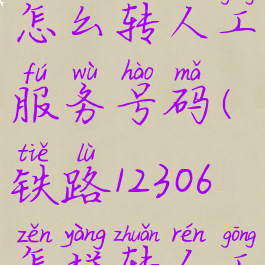 怎么转人工
fú wù hào mǎ
服务号码(
tiě lù
铁路12306
zěn yàng zhuǎn rén gōng
怎样转人工